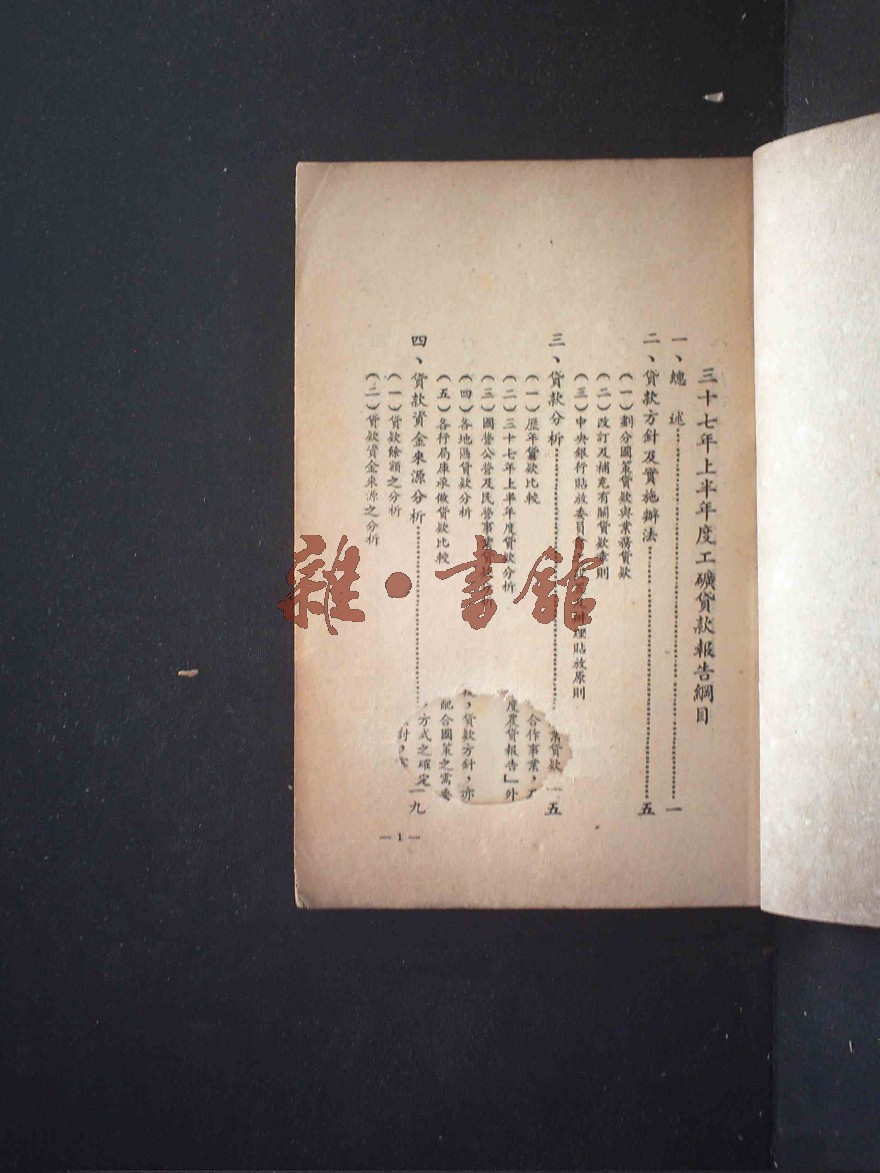 三十七年上半年度工礦貸款報告綱目
一、總述……一
二、貸款方針及實施辦法……五
(一)劃分國策貸款與業務貸款
(二)改訂及補充有關貸款章則
(三)中央銀行貼放委員會 辦理貼放原則
三、貸款分析……五
(一)歷年貸款比較
(二)三十七年上半年度貸款分析
(三)國營公營及民營事業
(四)各地區貸款分析
(五)各行局庫承做貸款比較
四、貸款資金來源分析……一九
(一)貸款餘額之分析
(二)貸款資金來源之分析
業貸款
合作事業,
度農貸報告」外
,貸款方針,亦
配合國策之需要
,方式之確定
— 1 —
雜·書館